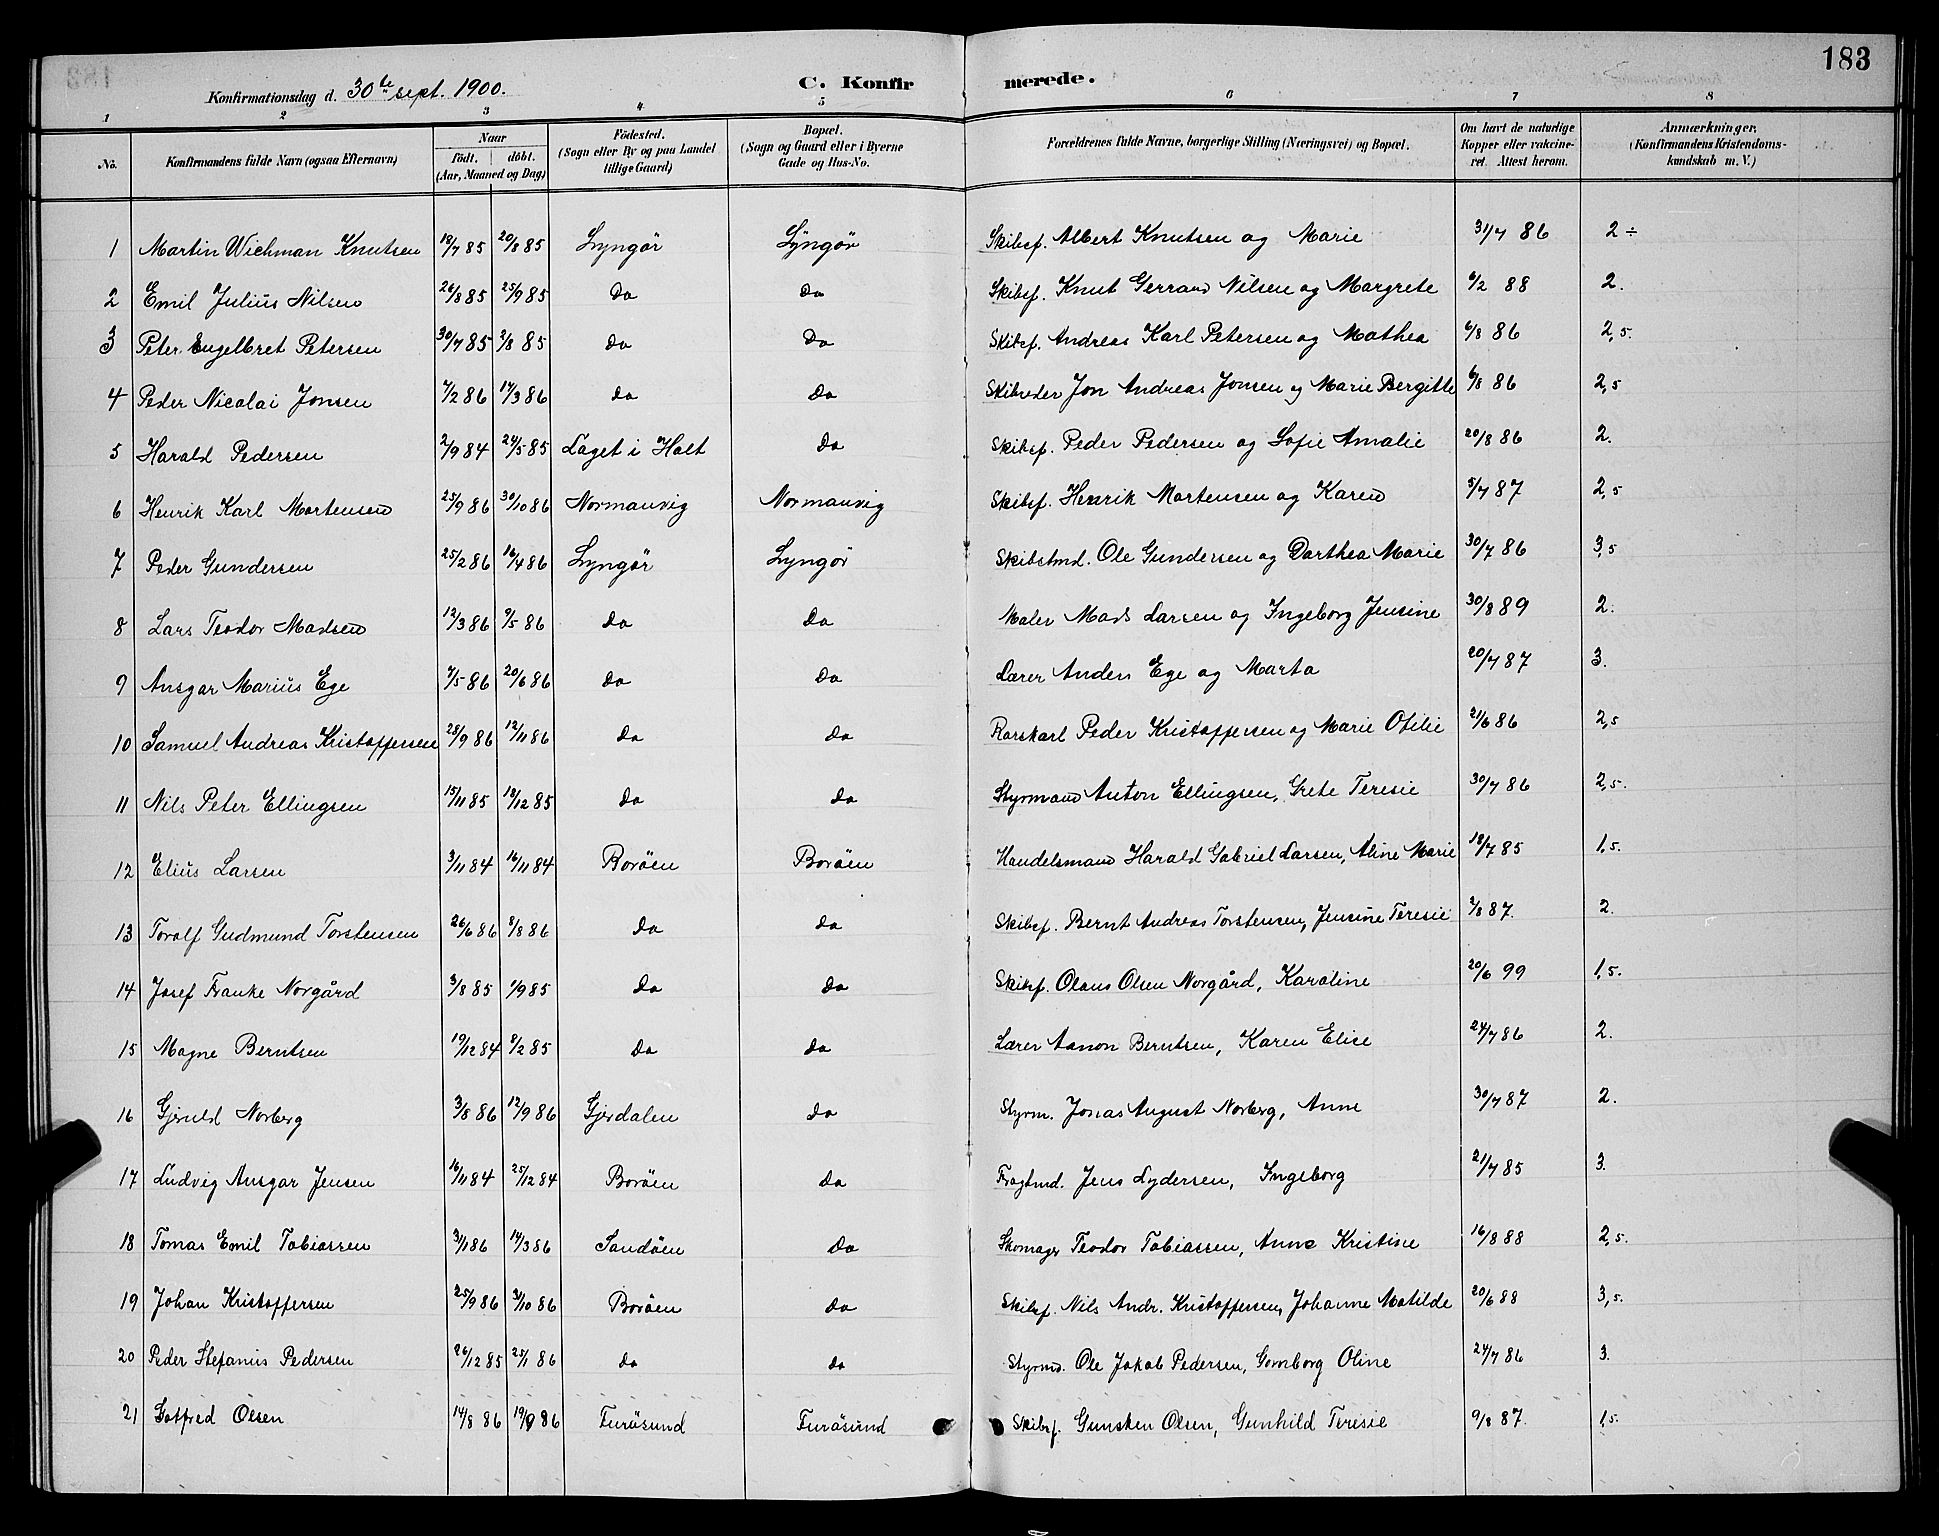 183
Konfirmationsdag d. 30te sept. 1900. C. Konfirmerede.
1 2 3 4 5 6 7 8
No. Konfirmandens fulde Navn (ogsaa Efternavn) Naar födt. döbt. (Aar, Maaned og Dag) Födested. (Sogn eller By og paa Landet tillige Gaard) Bopæl. (Sogn og Gaard eller i Byerne Gade og Hus-No. Forældrenes fulde Navne, borgerlige Stilling (Næringsvei) og Bopæl. Om havt de naturlige Kopper eller vakcineret. Attest herom. Anmærkninger. (Konfirmandens Kristendomskundskab m. V.)
1 Martin Wichman Knutsen 19/7 85 20/8 85 Lyngör Lyngör Skibsf. Albert Knutsen og Marie 31/7 86 2 ÷
2 Emil Julius Nilsen 26/8 85 25/9 85 do do Skibsf. Knut Gerrand Nilsen og Margrete 6/2 88 2.
3 Peter Engelbret Petersen 30/7 85 2/8 85 do do Skibsf. Andreas Karl Petersen og Mathea 6/8 86 2,5.
4 Peder Nicolai Jonsen 7/2 86 14/3 86 do do Skibreder Jon Andreas Jonsen og Marie Bergitte 6/8 86 2,5
5 Harald Pedersen 2/9 84 24/5 85 Laget i Holt do Skibsf. Peder Pedersen og Sofie Amalie 20/8 86 2.
6 Henrik Karl Mortensen 25/9 86 30/10 86 Normanvig Normanvig Skibsf. Henrik Mortensen og Karen 5/7 87 2,5
7 Peder Gundersen 25/2 86 16/4 86 Lyngör Lyngör Skibstmd. Ole Gundersen og Dorthea Marie 30/7 86 3,5
8 Lars Teodor Madsen 12/3 86 9/5 86 do do Maler Mads Larsen og Ingeborg Jensine 30/8 89 2.
9 Ansgar Marius Ege 7/5 86 20/6 86 do do Lærer Anders Ege og Marta 20/7 87 3.
10 Samuel Andreas Kristoffersen 28/9 86 12/11 86 do do Rorskarl Peder Kristoffersen og Marie Otilie 21/6 86 2,5
11 Nils Peter Ellingsen 15/11 85 18/12 85 do do Styrmand Anton Ellingsen, Grete Teresie 30/7 86 2,5.
12 Elius Larsen 3/11 84 16/11 84 Boröen Boröen Handelsmand Harald Gabriel Larsen, Aline Marie 18/7 85 1,5.
13 Toralf Gudmund Torstensen 26/6 86 8/8 86 do do Skibsf. Bernt Andreas Torstensen, Jensine Teresie 2/8 87. 2.
14 Josef Franke Norgård 3/8 85 1/9 85 do do Skibsf. Olaus Olsen Norgård, Karoline 20/6 99 1,5.
15 Magne Berntsen 19/12 84 8/2 85 do do Lærer Aanon Berntsen, Karen Elise 24/7 86 2.
16 Gjeruld Norberg 3/8 86 12/9 86 Gjerdalen do Styrm. Jonas August Norberg, Anne 30/7 87 2.
17 Ludvig Ansgar Jensen 16/11 84 25/12 84 Boröen do Fragtmd. Jens Lydersen, Ingeborg 21/7 85 3.
18 Tomas Emil Tobiassen 3/1 86 14/3 86 Sandöen do Skomager Teodor Tobiassen, Anne Kristine 16/8 88 2,5.
19 Johan Kristoffersen 25/9 86 3/10 86 Boröen do Skibsf. Nils Andr. Kristoffersen, Johanne Matilde 20/6 88 3,5.
20 Peder Stefanus Pedersen 26/12 85 25/1 86 do do Styrmd. Ole Jakob Pedersen, Gomborg Oline 24/7 86 3.
21 Gotfred Olsen 14/8 86 19/9 86 Furösund Furösund Skibsf. Gunsten Olsen, Gunhild Teresie 9/8 87. 1,5.